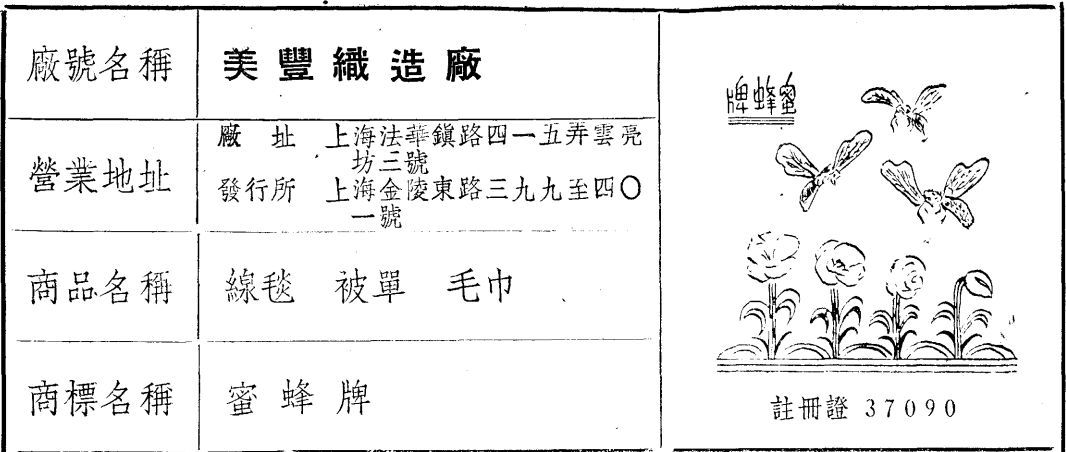 廠號名稱 美豐織造廠
營業地址 廠址 上海法華鎮路四一五弄雲亮
坊三號
發行所 上海金陵東路三九九至四〇
一號
商品名稱 線毯 被單 毛巾
商標名稱 蜜蜂牌
牌蜂蜜
註冊證 37090